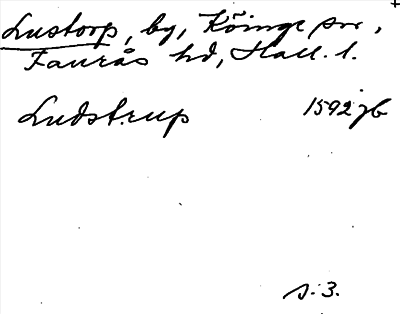 Lustorp, by, Köinge sn,
Faurås hd, Hall. l.
Ludstrup 1592 jb
s. 3.